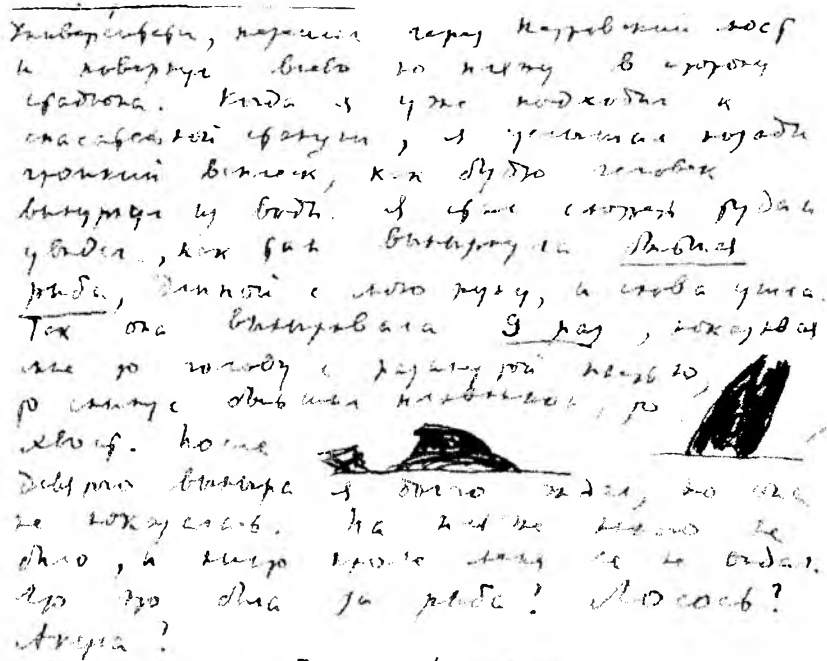 Университета, перешел через Петровский мост
и повернул влево по пляжу в сторону
стадиона. Когда я уже подходил к
спасательной станции, я услышал позади
громкий всплеск, как будто человек
вынырнул из воды. Я стал смотреть туда и
увидел, как там вынырнула большая
рыба, длиной с мою руку, и снова ушла.
Так она выныривала 9 раз, показывая
мне то голову с разинутой пастью,
то спину с большим плавником, то
хвост. После
девятого выныра я долго ждал, но она
не показалась. На пляже никого не
было, и никто кроме меня ее не видал.
Что это была за рыба? Лосось?
Акула?